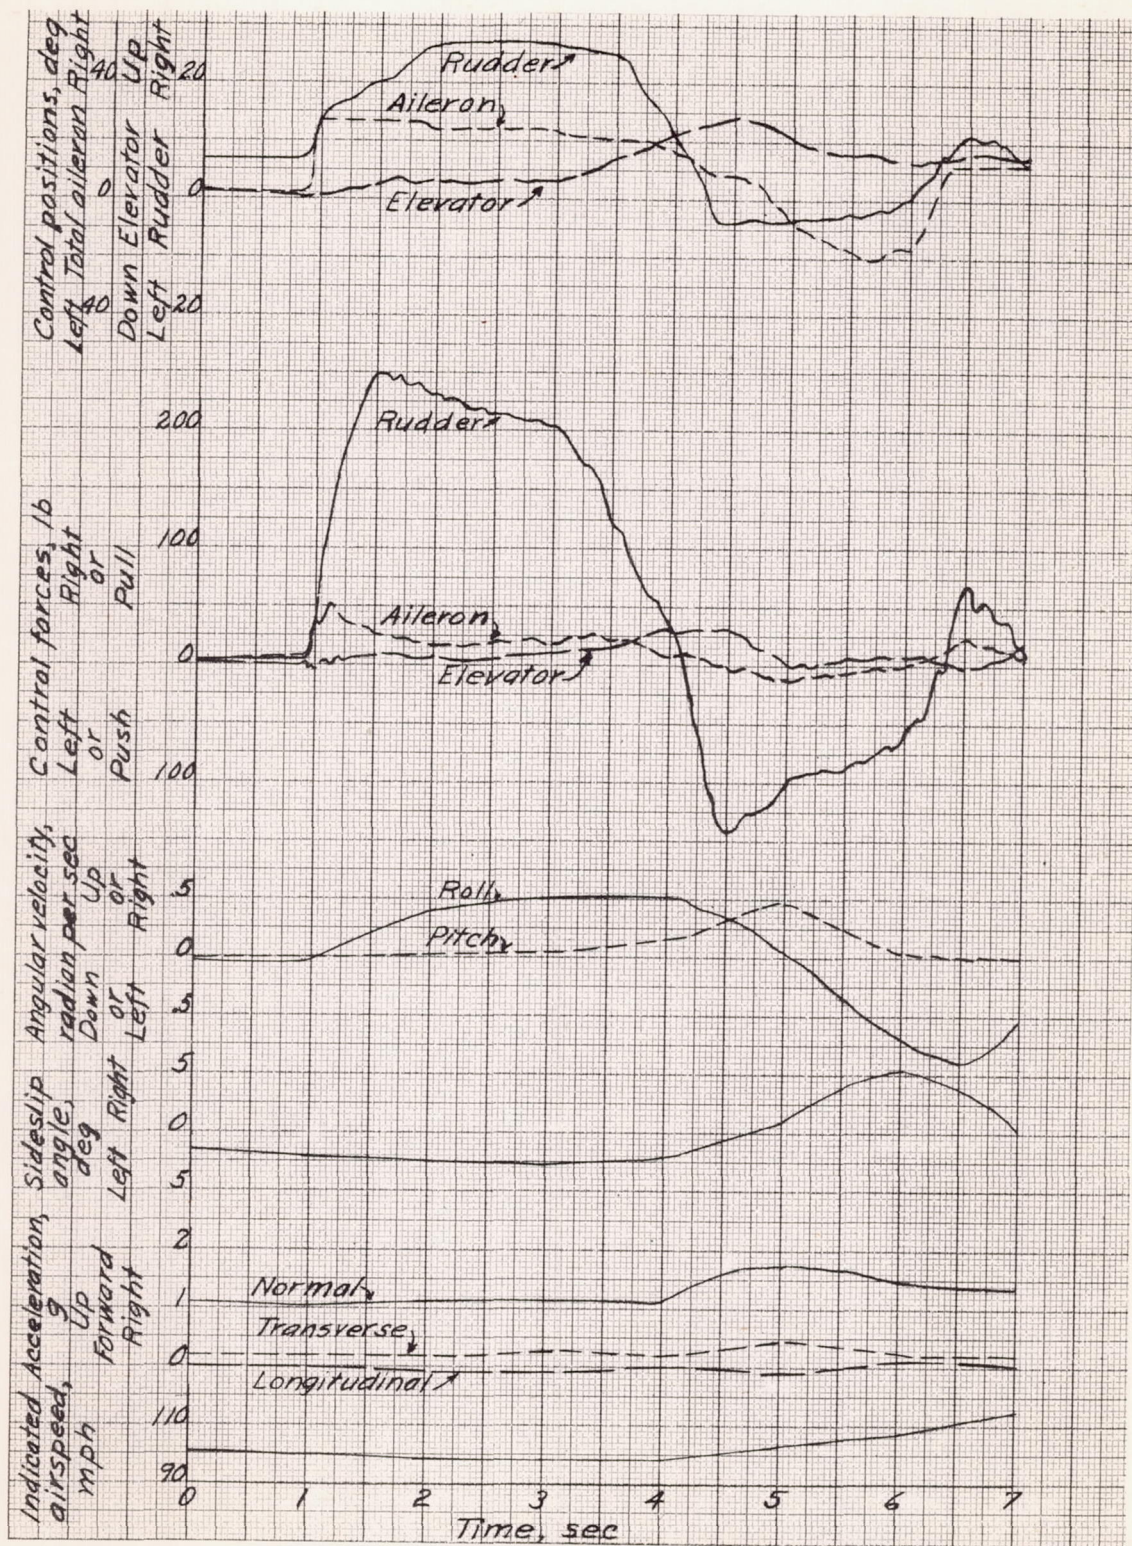 Control positions, deg
Left Total aileron Right
40
0
40
Down Elevator Up
Left Rudder Right
20
0
20
Rudder
Aileron
Elevator
Control forces, lb
Left Right
or or
Push Pull
200
100
0
100
Rudder
Aileron
Elevator
Angular velocity,
radian per sec
Down Up
or or
Left Right
.5
0
.5
Roll
Pitch
Sideslip
angle,
deg
Left Right
5
0
5
Acceleration,
g
Up
Forward
Right
2
1
0
Normal
Transverse
Longitudinal
Indicated
airspeed,
mph
110
90
0 1 2 3 4 5 6 7
Time, sec